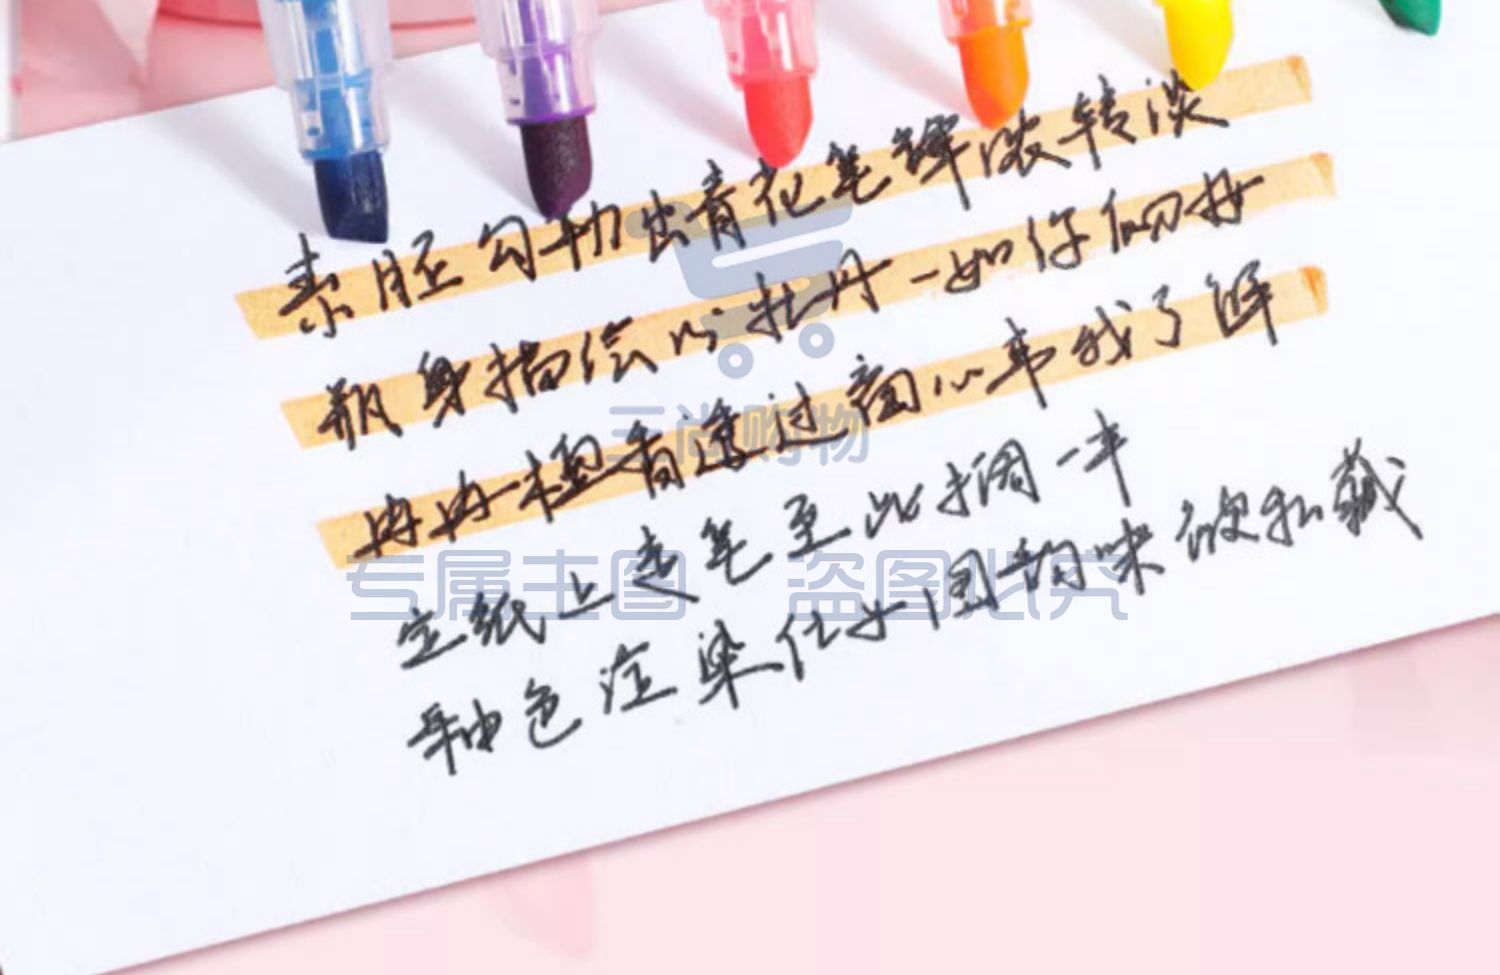 素胚勾勒出青花笔锋浓转淡
瓶身描绘的牡丹一如你初妆
冉冉檀香透过窗心事我了解
宣纸上走笔至此搁一半
釉色渲染仕女图韵味被私藏
三尚购物
专属主图 盗图必究